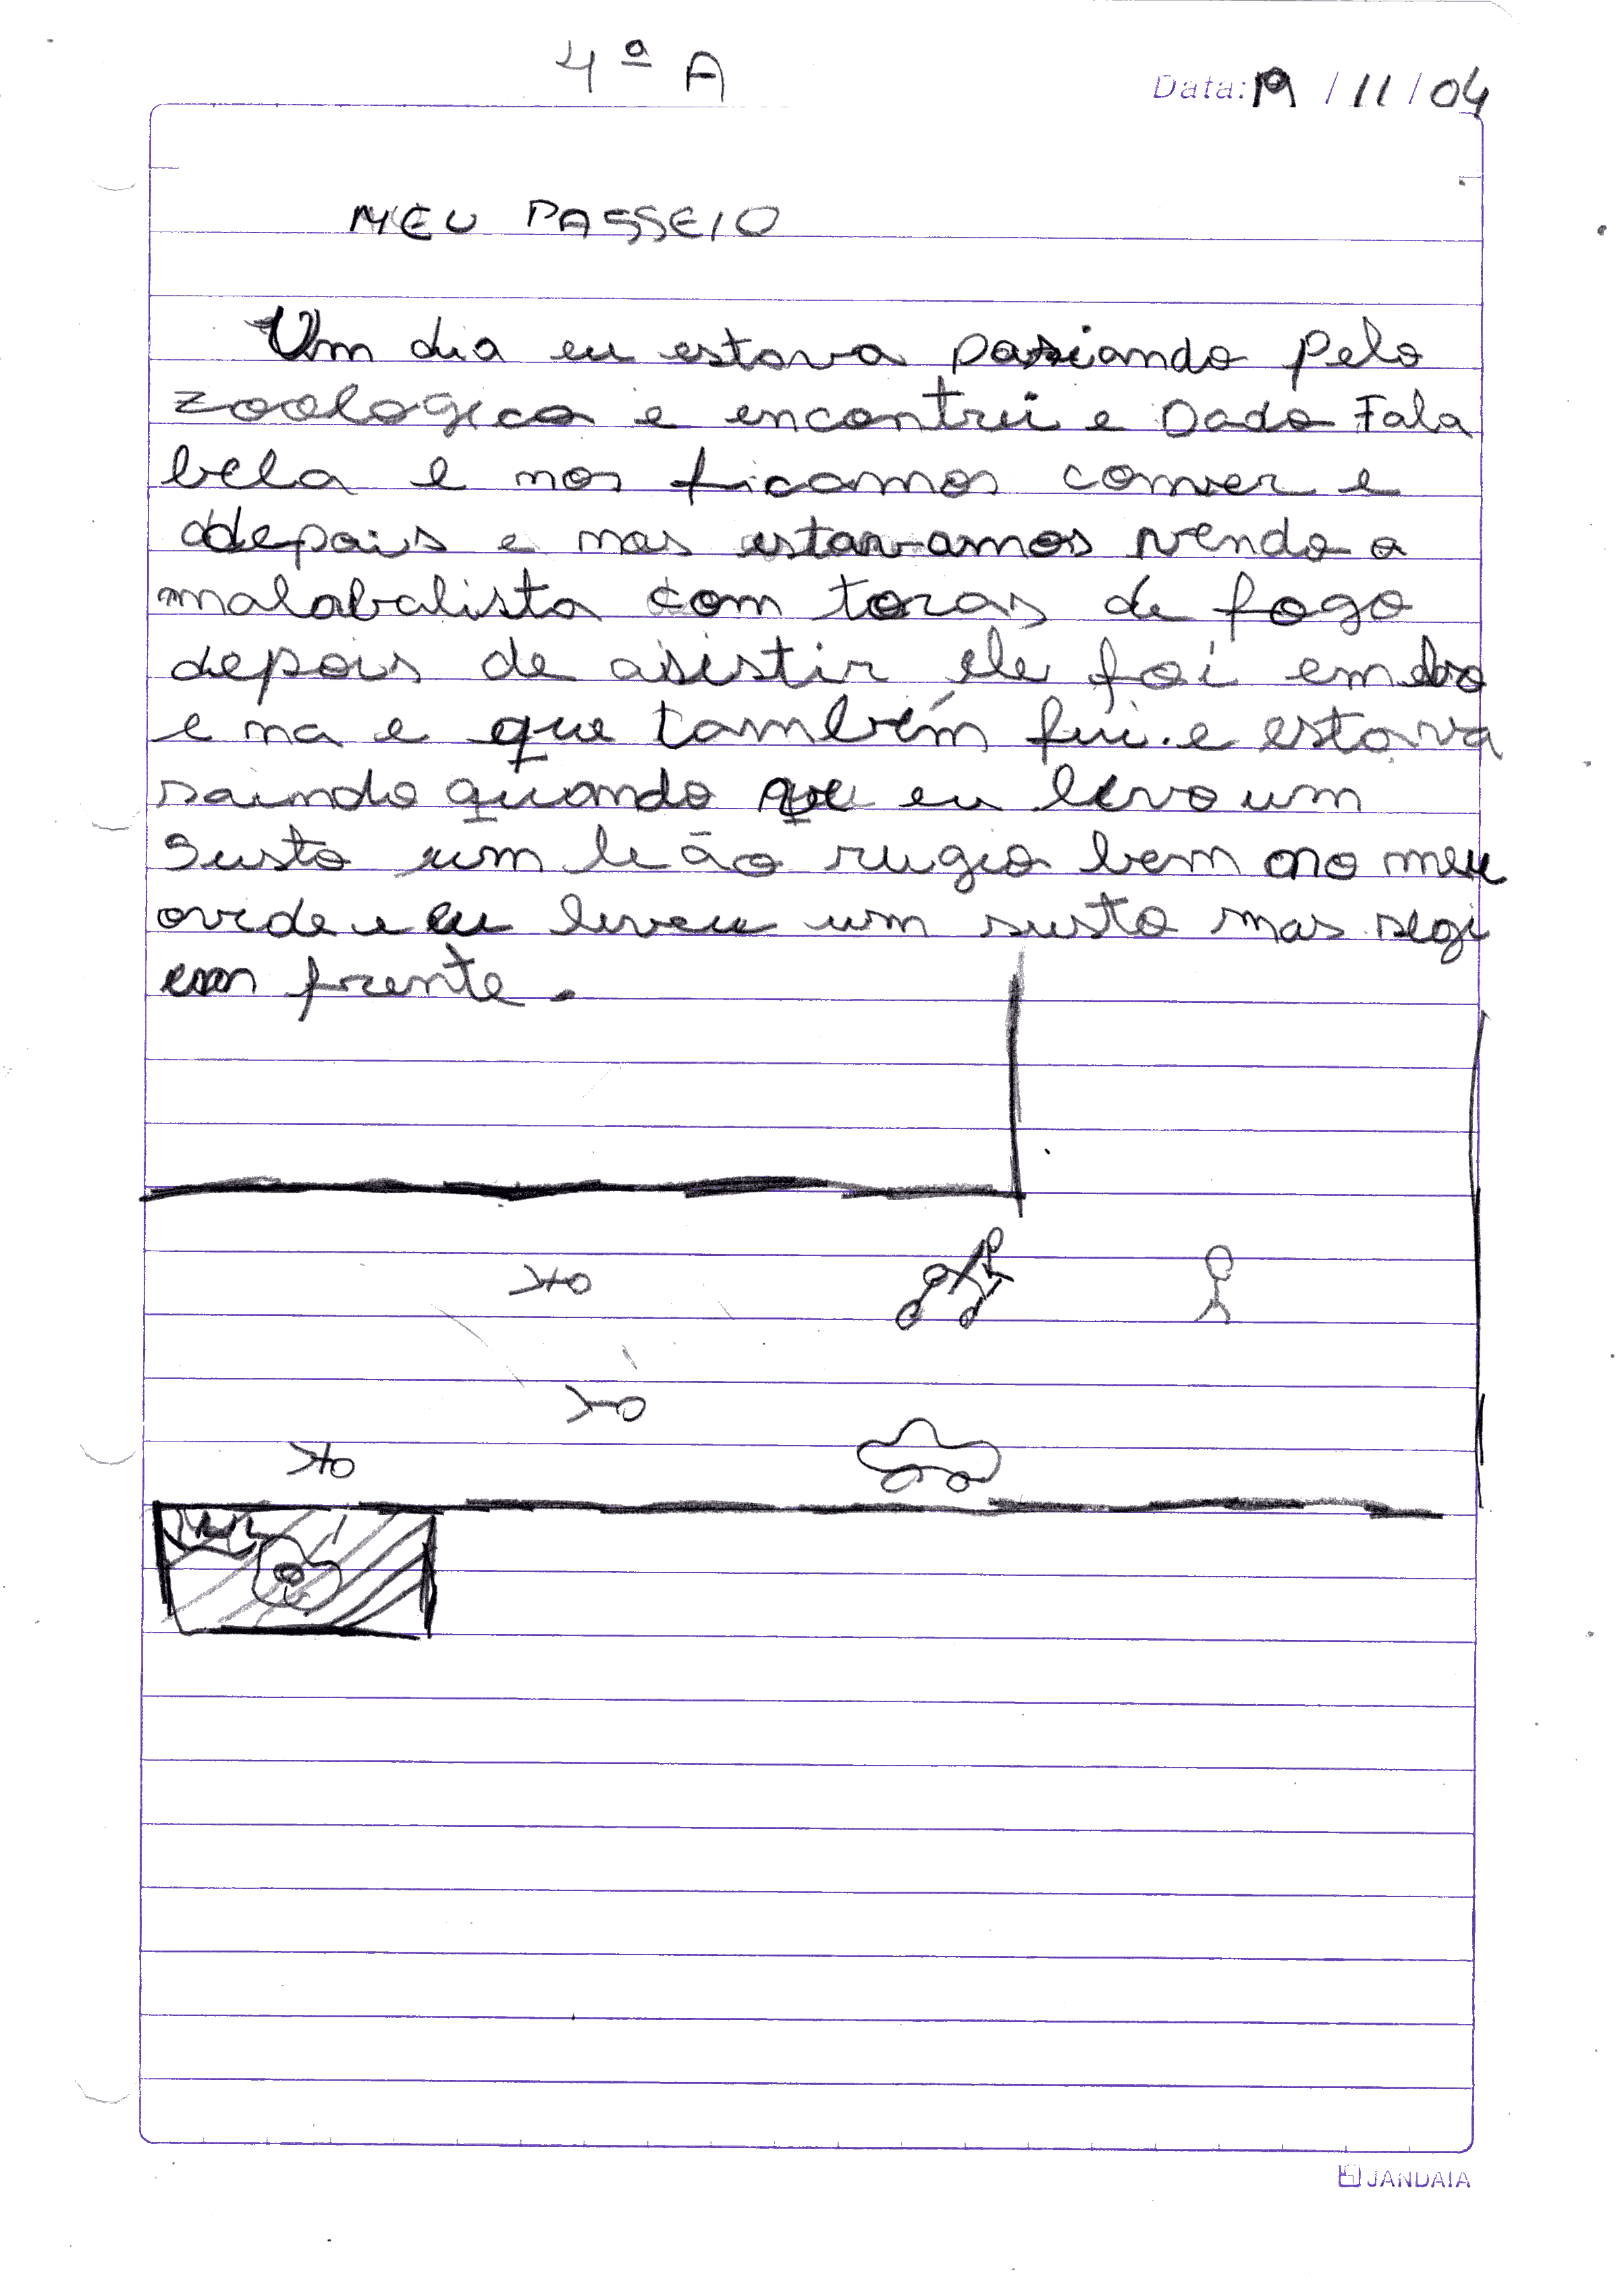 4ª A
Data: 19/11/04
MEU PASSEIO
Um dia eu estava pasiando pelo
zoologico e encontrei e Dado Fala
bela e nos ficamos comer e
depois e nos estavamos vendo o
malabalista com tozas de fogo
depois de asistir ele foi embo
e na e que também fui. e estava
saindo quando que eu levo um
Susto um leão rugio bem no meu
ovide e eu leveu um susto mas segi
em frente.
JANDAIA